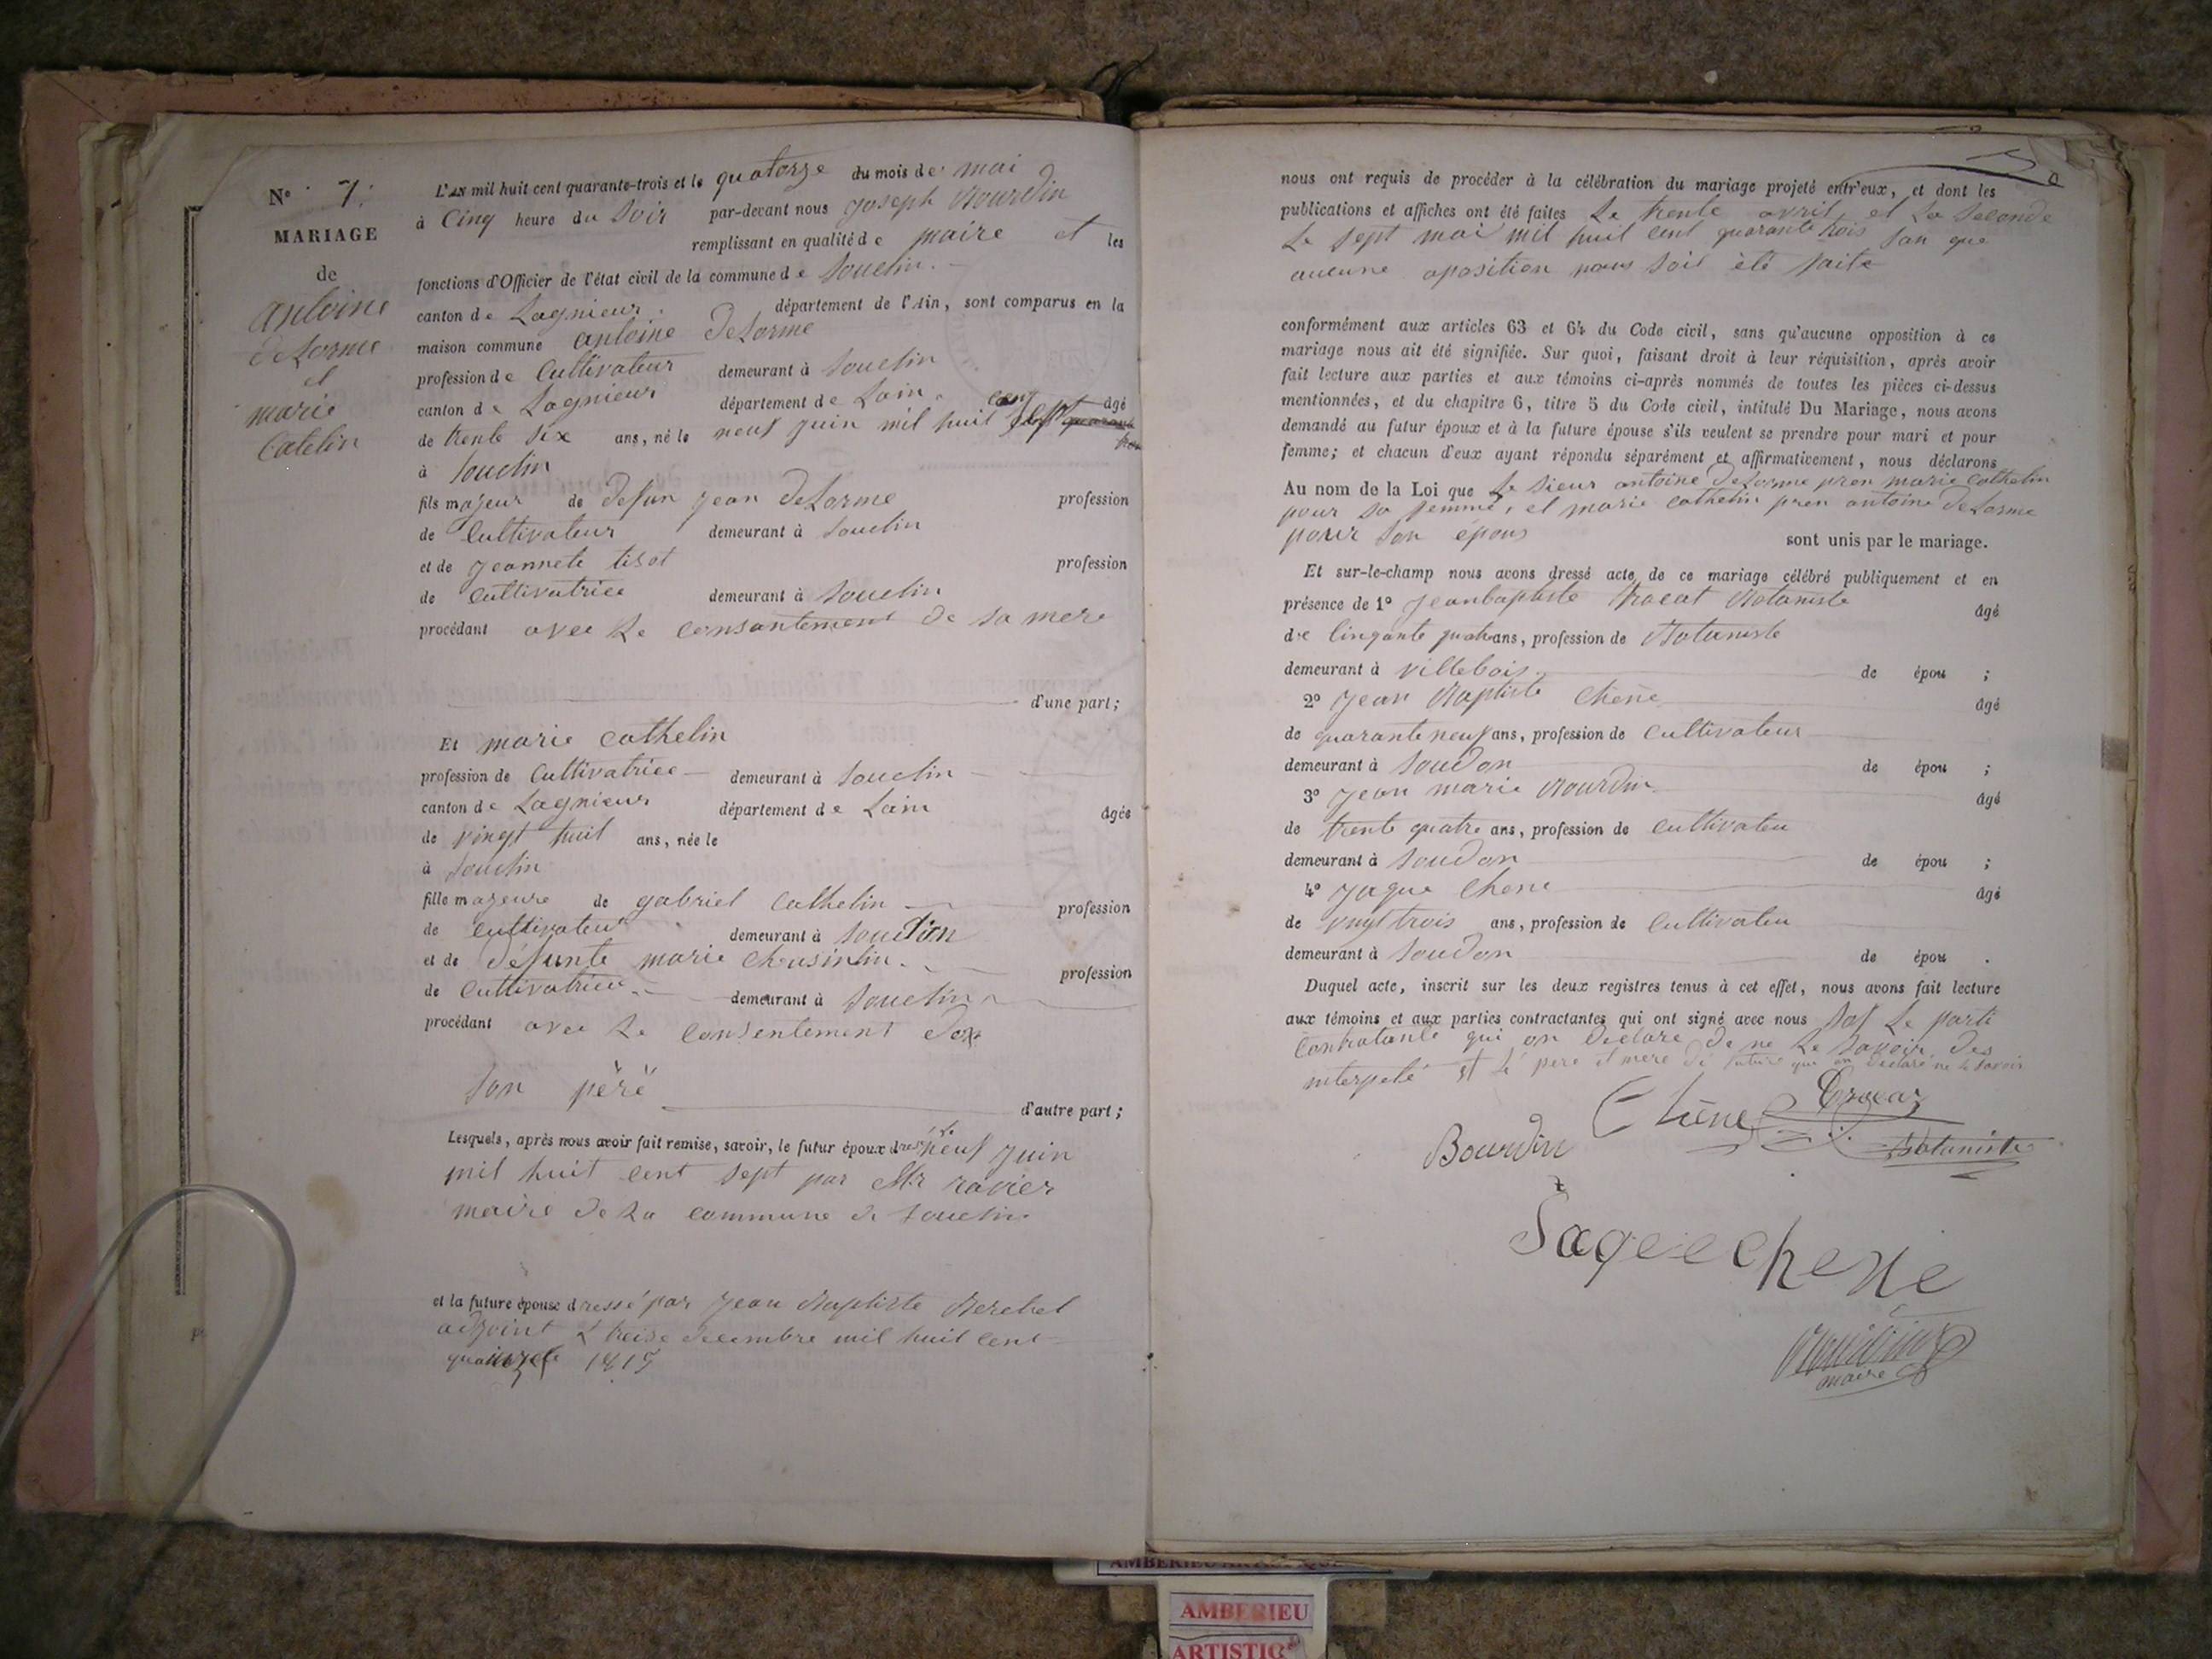 N° 7.
MARIAGE
de
antoine
deLorme
et
marie
Catelin
L'AN mil huit cent quarante-trois et le quatorze du mois de mai
à Cinq heure du Soir par-devant nous joseph Bourdin
remplissant en qualité de maire et les
fonctions d'Officier de l'état civil de la commune de Souclin.
canton de Lagnieur. département de l'Ain, sont comparus en la
maison commune antoine deLorme
profession de Cultivateur demeurant à Souclin
canton de Lagnieur département de Lain. âgé
de trente Six ans, né le neuf juin mil huit cent sept
à Souclin
fils majeur de defun jean deLorme profession
de Cultivateur demeurant à Souclin
et de jeannete tisot profession
de Cultivatrice demeurant à Souclin
procédant avec Le consantement de sa mere
d'une part;
Et marie cathelin
profession de Cultivatrice demeurant à Souclin
canton de Lagnieur département de Lain âgée
de vingt huit ans, née le
à Souclin
fille majeure de gabriel Cathelin profession
de cultivateur demeurant à Soudon
et de défunte marie profession
de Cultivatrice demeurant à Souclin
procédant avec Le consentement de
Son père
d'autre part;
Lesquels, après nous avoir fait remise, savoir, le futur époux neuf juin
mil huit cent sept par Mr ravier
maire de La commune de Souclin
et la future épouse dressé par jean Baptiste Berchet
adjoint L treise decembre mil huit cent
quainze
nous ont requis de procéder à la célébration du mariage projeté entr'eux, et dont les
publications et affiches ont été faites Le trente avril et La Seconde
Le Sept mai mil huit cent quarante trois San que
aucune oposition nous soit été faite
conformément aux articles 63 et 64 du Code civil, sans qu'aucune opposition à ce
mariage nous ait été signifiée. Sur quoi, faisant droit à leur réquisition, après avoir
fait lecture aux parties et aux témoins ci-après nommés de toutes les pièces ci-dessus
mentionnées, et du chapitre 6, titre 5 du Code civil, intitulé Du Mariage, nous avons
demandé au futur époux et à la future épouse s'ils veulent se prendre pour mari et pour
femme; et chacun d'eux ayant répondu séparément et affirmativement, nous déclarons
Au nom de la Loi que Le Sieur antoine deLorme pren marie Cathelin
pour sa femme, et marie cathelin pren antoine deLorme
pour Son épous sont unis par le mariage.
Et sur-le-champ nous avons dressé acte de ce mariage célébré publiquement et en
présence de 1° jeanbaptiste trocat Botaniste âgé
de Cinqante quatre ans, profession de Botaniste
demeurant à villebois. de épou ;
2° jean Baptiste Chêne âgé
de quarante neuf ans, profession de Cultivateur
demeurant à Soudon de épou ;
3° jean marie Bourdin âgé
de trente quatre ans, profession de Cultivateu
demeurant à Soudon de épou ;
4° jaque Chene âgé
de vingt trois ans, profession de Cultivateu
demeurant à Soudon de épou .
Duquel acte, inscrit sur les deux registres tenus à cet effet, nous avons fait lecture
aux témoins et aux parties contractantes qui ont signé avec nous Sof Le parti
Contratante qui on declare de ne Le Savoir des
interpelé et Le pere et mere de qui on declaré ne le savoir
Chêne
Bourdin
Botaniste
Jaqee chene
maire
AMBERIEU ARTISTIQUE
AMBERIEU
ARTISTIQ